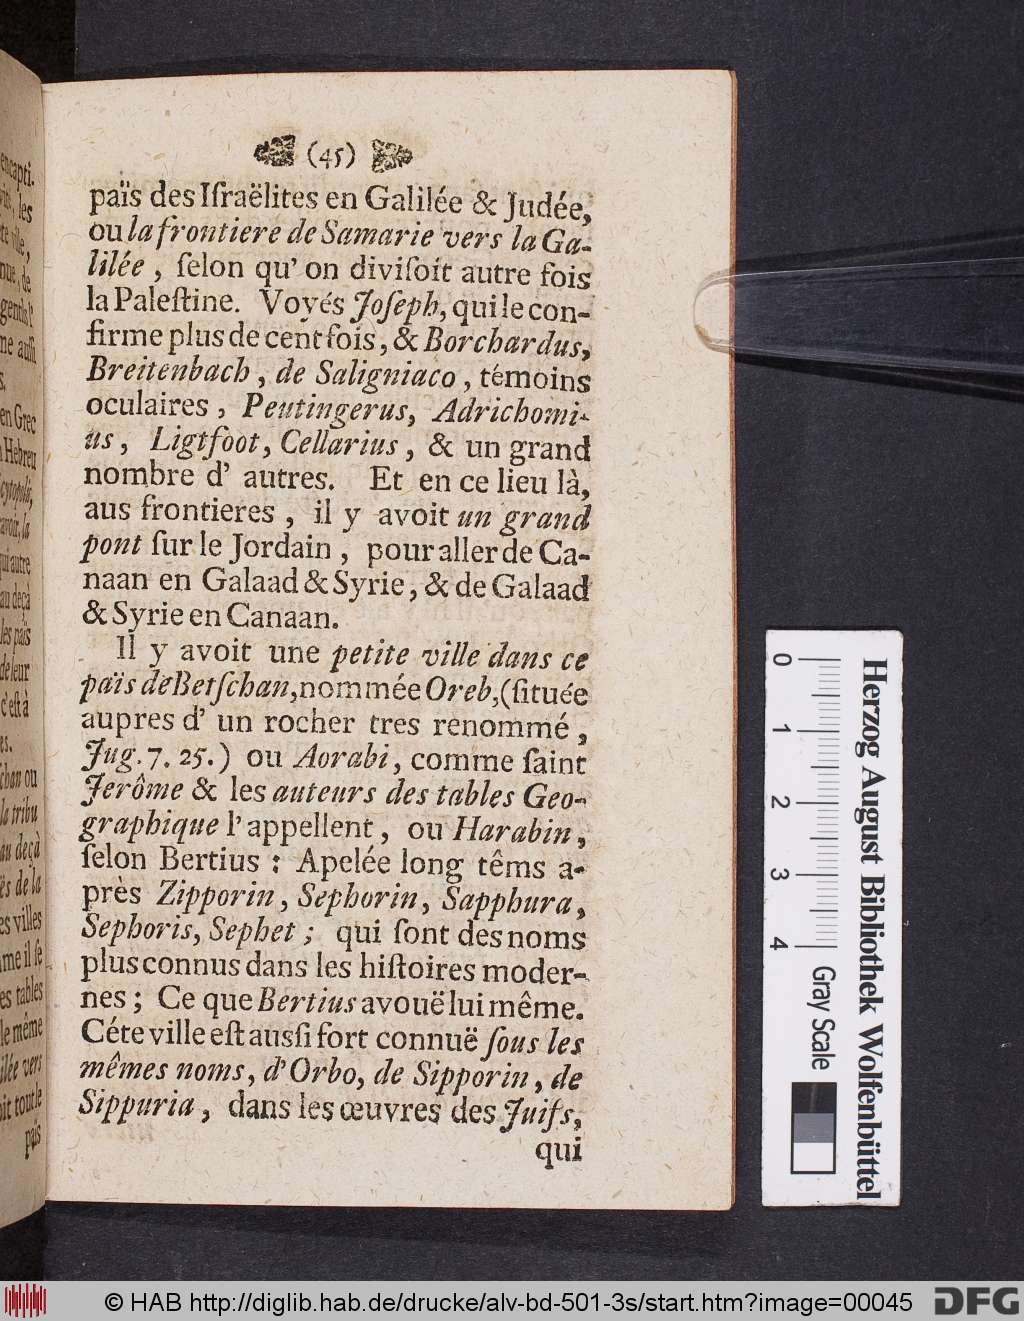 (45)
païs des Iſraëlites en Galilée & Judée,
ou la frontiere de Samarie vers la Ga-
lilée, ſelon qu' on diviſoit autre fois
la Paleſtine. Voyés Joſeph, qui le con-
firme plus de cent fois, & Borchardus,
Breitenbach, de Saligniaco, témoins
oculaires, Peutingerus, Adrichomi-
us, Ligtfoot, Cellarius, & un grand
nombre d' autres. Et en ce lieu là,
aus frontieres, il y avoit un grand
pont ſur le Jordain, pour aller de Ca-
naan en Galaad & Syrie, & de Galaad
& Syrie en Canaan.
Il y avoit une petite ville dans ce
païs de Betſchan, nommée Oreb, (ſituée
aupres d' un rocher tres renommé,
Jug. 7. 25.) ou Aorabi, comme ſaint
Jerôme & les auteurs des tables Geo-
graphique l' appellent, ou Harabin,
ſelon Bertius : Apelée long têms a-
près Zipporin, Sephorin, Sapphura,
Sephoris, Sephet ; qui ſont des noms
plus connus dans les hiſtoires moder-
nes ; Ce que Bertius avouë lui même.
Céte ville eſt ausſi fort connuë ſous les
mêmes noms, d'Orbo, de Sipporin, de
Sippuria, dans les œuvres des Juifs,
qui
encapti.
les
ville,
nue, de
gentls l'
me auſſi
s.
en Grec
Hebreu
cytopole,
avoir, la
qui autre
au deçà
les païs
de leur
c' eſt à
es.
chan ou
la tribu
au deçà
ës de la
es villes
me il ſe
es tables
le même
ilée vers
oit tout le
païs
0 1 2 3 4
Gray Scale
Herzog August Bibliothek Wolfenbüttel
© HAB http://diglib.hab.de/drucke/alv-bd-501-3s/start.htm?image=00045
DFG